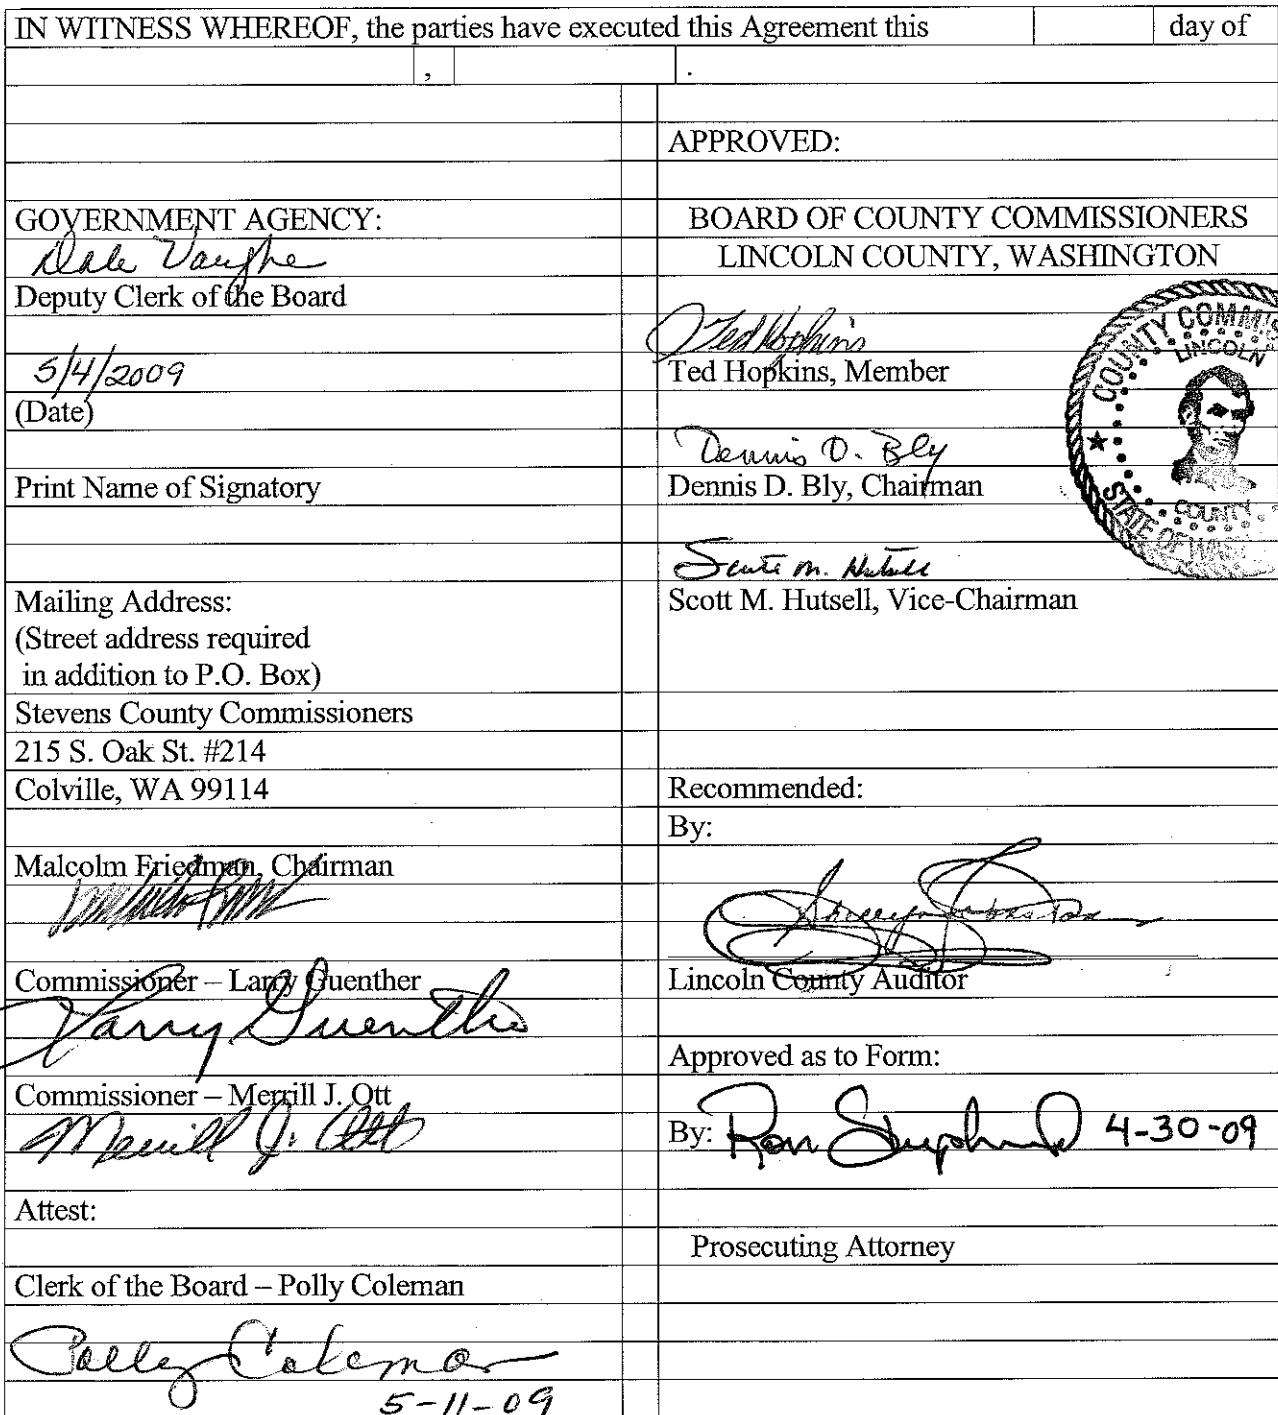 IN WITNESS WHEREOF, the parties have executed this Agreement this day of
, .
APPROVED:
GOVERNMENT AGENCY:
Dale
Deputy Clerk of the Board
5/4/2009
(Date)
Print Name of Signatory
Mailing Address:
(Street address required
in addition to P.O. Box)
Stevens County Commissioners
215 S. Oak St. #214
Colville, WA 99114
Malcolm Friedman, Chairman
Commissioner – Larry Guenther
Larry Guenther
Commissioner – Merrill J. Ott
Merrill J. Ott
Attest:
Clerk of the Board – Polly Coleman
Polly Coleman
5-11-09
BOARD OF COUNTY COMMISSIONERS
LINCOLN COUNTY, WASHINGTON
Ted Hopkins
Ted Hopkins, Member
Dennis D. Bly
Dennis D. Bly, Chairman
Scott M. Hutsell
Scott M. Hutsell, Vice-Chairman
COUNTY COMMIS
LINCOLN
COUNTY
STATE OF WAS
Recommended:
By:
Lincoln County Auditor
Approved as to Form:
By: Ron Shepherd 4-30-09
Prosecuting Attorney